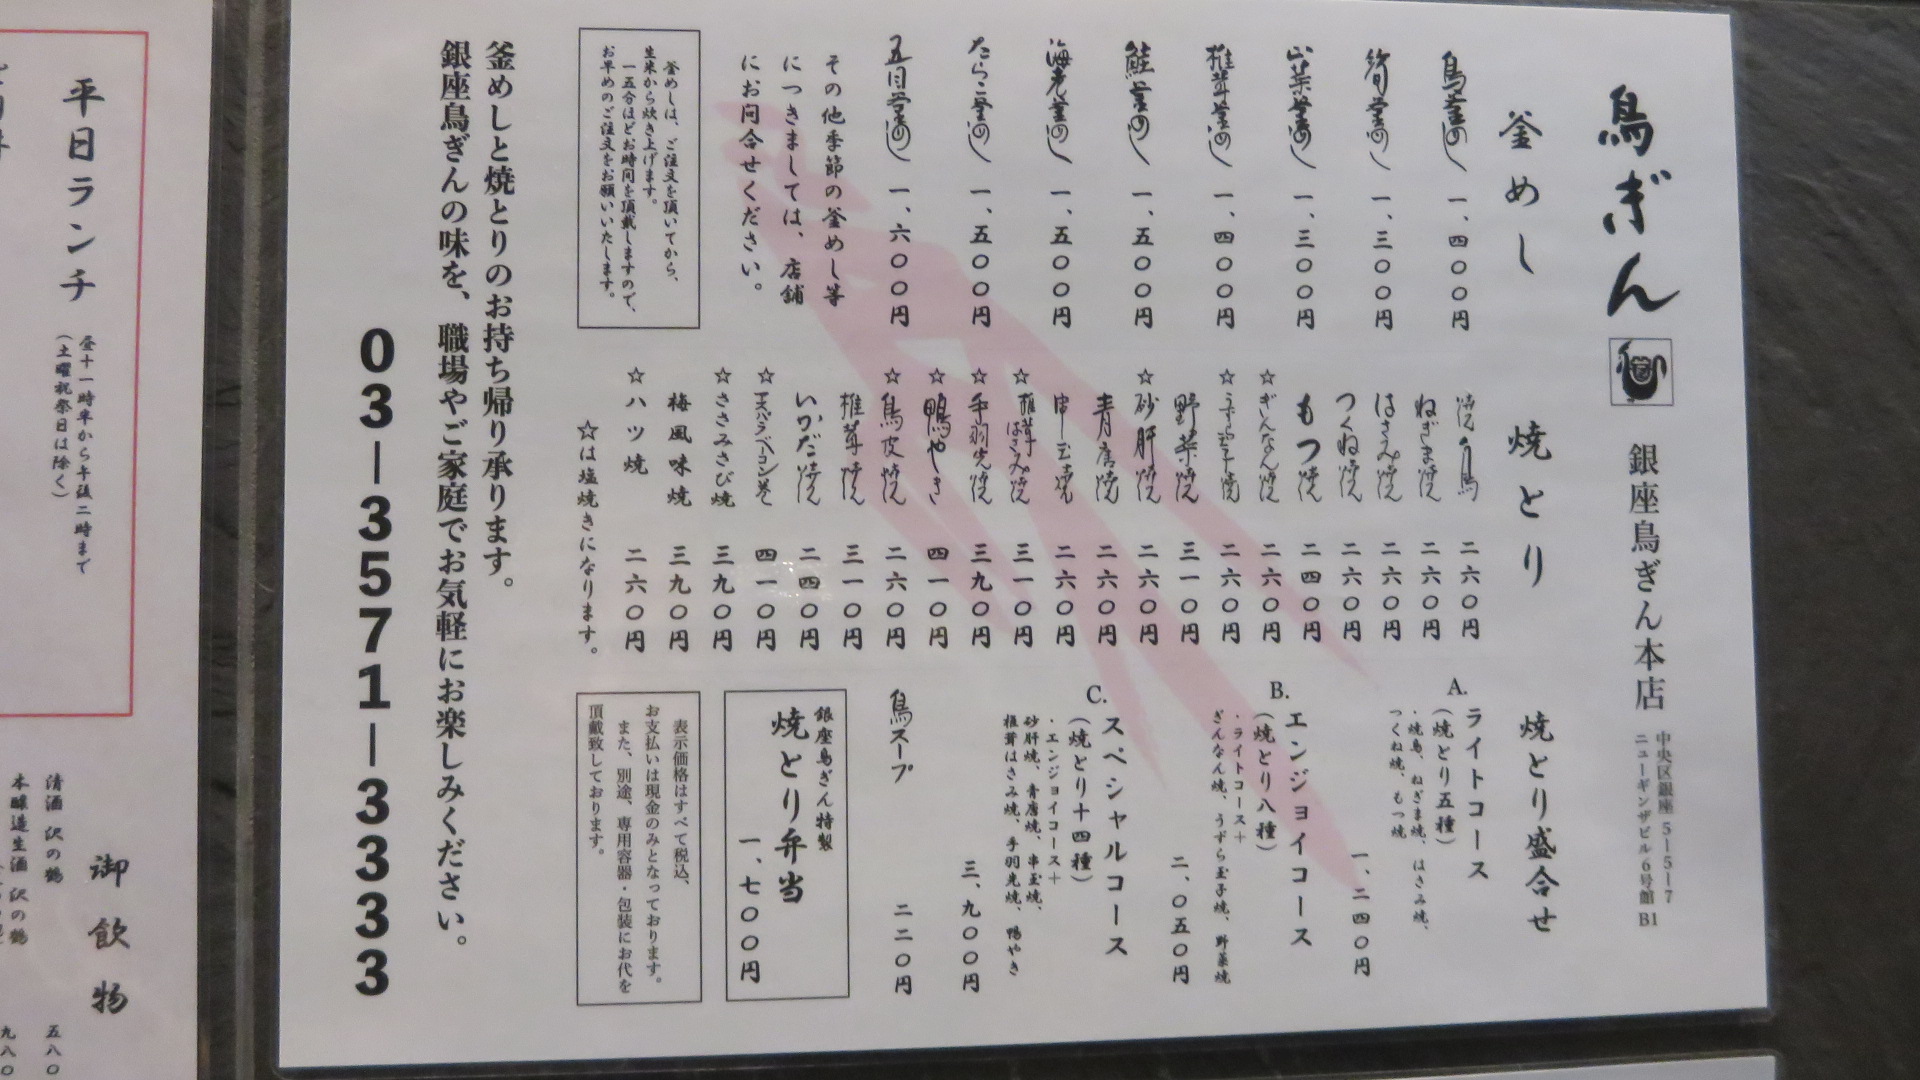 鳥ぎん
銀座鳥ぎん本店
中央区銀座 5-5-7
ニューギンザビル6号館 B1
釜めし
鳥釜めし 一、四〇〇円
筍釜めし 一、三〇〇円
山菜釜めし 一、三〇〇円
椎茸釜めし 一、四〇〇円
鮭釜めし 一、五〇〇円
海老釜めし 一、五〇〇円
たらこ釜めし 一、五〇〇円
五目釜めし 一、六〇〇円
その他季節の釜めし等
につきましては、店舗
にお問合せください。
釜めしは、ご注文を頂いてから、
生米から炊き上げます。
一五分ほどお時間を頂戴しますので、
お早めのご注文をお願いいたします。
焼とり
焼鳥 二六〇円
ねぎま焼 二六〇円
はさみ焼 二六〇円
つくね焼 二六〇円
もつ焼 二四〇円
☆ぎんなん焼 二六〇円
☆うずら玉子焼 二六〇円
野菜焼 三一〇円
☆砂肝焼 二六〇円
青唐焼 二六〇円
串玉焼 二六〇円
☆椎茸はさみ焼 三一〇円
☆手羽先焼 三九〇円
☆鴨やき 四一〇円
☆鳥皮焼 二六〇円
椎茸焼 三一〇円
いかだ焼 二四〇円
☆アスパラベーコン巻 四一〇円
☆ささみさび焼 三九〇円
梅風味焼 三九〇円
☆ハツ焼 二六〇円
☆は塩焼きになります。
焼とり盛合せ
A. ライトコース
(焼とり五種)
・焼鳥、ねぎま焼、はさみ焼、
つくね焼、もつ焼
一、二四〇円
B. エンジョイコース
(焼とり八種)
・ライトコース＋
ぎんなん焼、うずら玉子焼、野菜焼
二、〇五〇円
C. スペシャルコース
(焼とり十四種)
・エンジョイコース＋
砂肝焼、青唐焼、串玉焼、
椎茸はさみ焼、手羽先焼、鴨やき
三、九〇〇円
鳥スープ 二二〇円
銀座鳥ぎん特製
焼とり弁当
一、七〇〇円
表示価格はすべて税込、
お支払いは現金のみとなっております。
また、別途、専用容器・包装にお代を
頂戴致しております。
釜めしと焼とりのお持ち帰り承ります。
銀座鳥ぎんの味を、職場やご家庭でお気軽にお楽しみください。
03-3571-3333
平日ランチ
昼十一時半から午後二時まで
(土曜祝祭日は除く)
御飲物
清酒 沢の鶴 五八〇
本醸造生酒 沢の鶴 九八〇